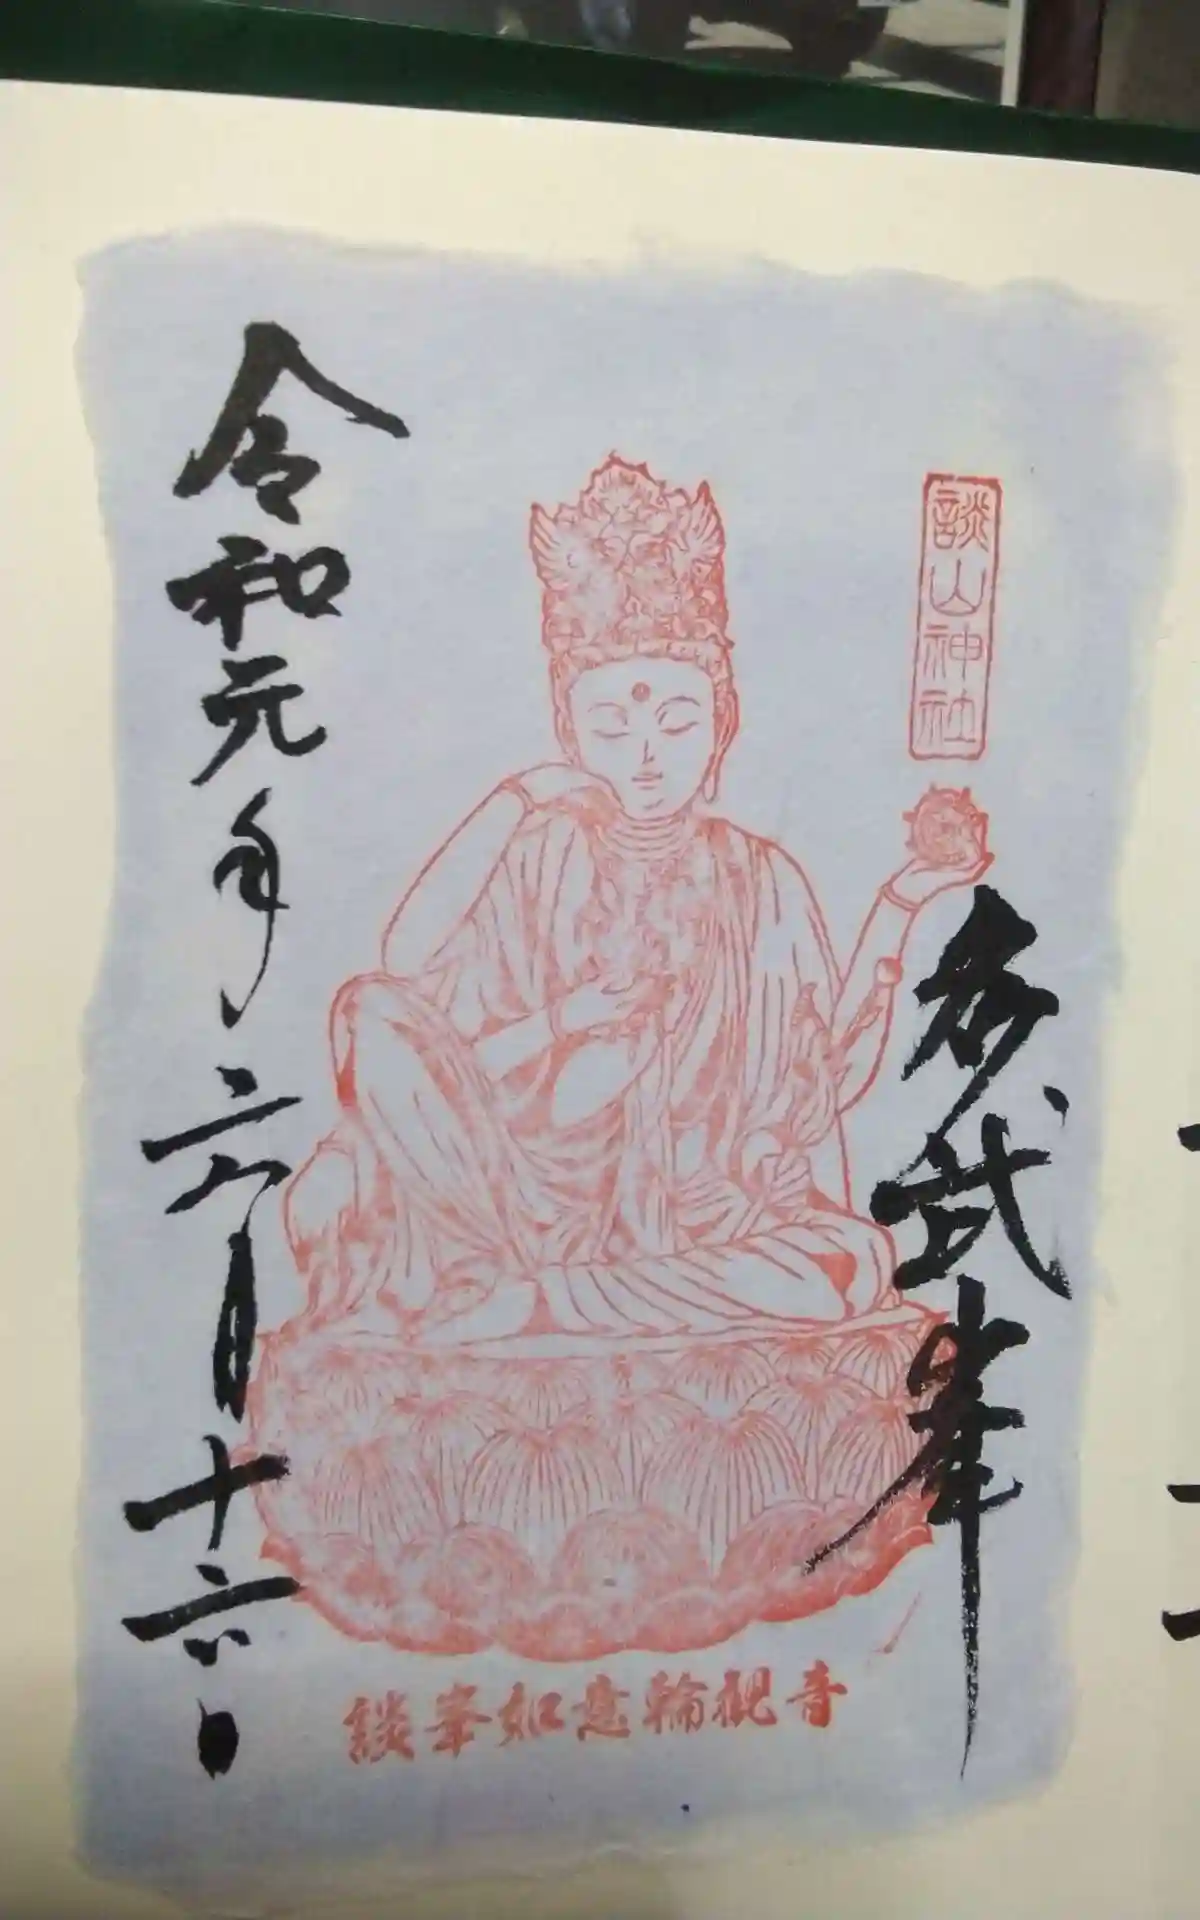 談山神社
多武峯
令和元年六月十六日
談峯如意輪観音